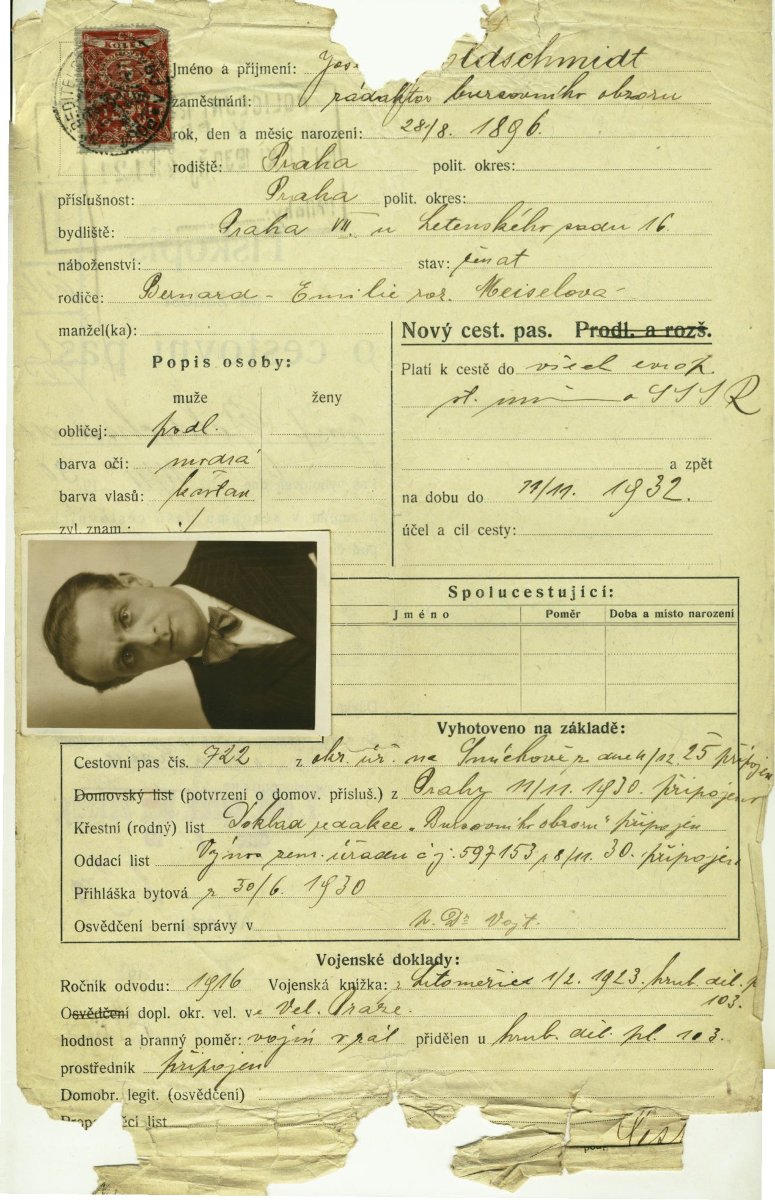 Jméno a příjmení: Jose ldschmidt
zaměstnání: bursovního obzoru
rok, den a měsíc narození: 28./8. 1896.
rodiště: Praha polit. okres:
příslušnost: Praha polit. okres:
bydliště: Praha VII. u Letenského sadu 16.
náboženství: stav: ženat
rodiče: Bernard - Emilie roz. Meiselová
manžel(ka):
Nový cest. pas. Prodl. a rozš.
Popis osoby:
muže ženy
obličej: podl.
barva očí: modrá
barva vlasů: kaštan
zvl. znam.: ./
Platí k cestě do všech evrop.
st. mimo SSSR
a zpět
na dobu do 11/11. 1932.
účel a cíl cesty:
Spolucestující:
Jméno Poměr Doba a místo narození
Vyhotoveno na základě:
Cestovní pas čís. 722 z okr. úř. na Smíchově z dne 4/12 25 připojen
Domovský list (potvrzení o domov. přísluš.) z Prahy 11/11. 1930. připojeno
Křestní (rodný) list Doklad redakce „Bursovního obzoru" připojen
Oddací list Výnos zem. úřadu čj. 597153 z 8/11. 30. připojen
Přihláška bytová z 30/6. 1930
Osvědčení berní správy v Dr Vojt.
Vojenské doklady:
Ročník odvodu: 1916 Vojenská knížka: z Litoměřic 1/2. 1923. hrub. děl. p
103.
Osvědčení dopl. okr. vel. ve Vel. Praze.
hodnost a branný poměr: vojín v zál přidělen u hrub. děl. pl. 103.
prostředník připojen
Domobr. legit. (osvědčení)
list